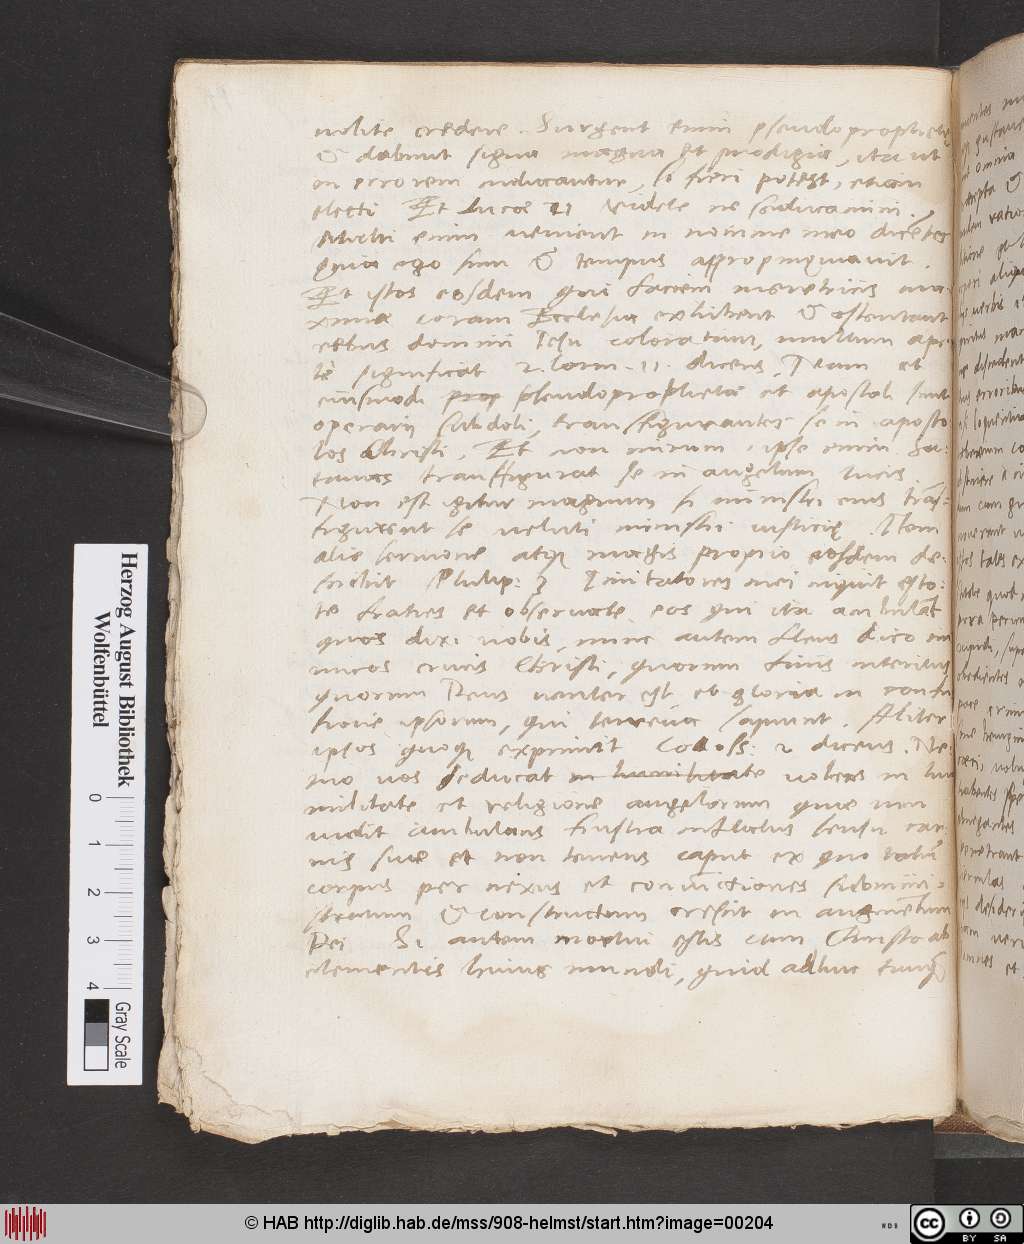 nolite credere. Surgent enim pseudoprophetę
& dabunt signa magna et prodigia, ita ut
in errorem inducantur, si fieri potest, etiam
electi Et Lucæ 21 Videte ne seducamini.
Multi enim venient in nomine meo dicẽtes
Quia ego sum & tempus appropinquavit.
Et istos eosdem qui faciem meretricis ma-
xime coram Ecclesia exhibent & ostentant
rebus domini Iesu coloratam, multum aper
te significat 2. Corin. 11. dicens, Nam et
eiusmodi pseudoprophetæ et apostoli sunt
operarij subdoli, transfigurantes se in aposto
los Christi, Et non mirum, ipse enim Sa-
tanas transfigurat se in angelum lucis
Non est igitur magnum si ministri eius trãs-
figurent se veluti ministri iusticię. Item
alio sermone atq magis proprio eosdem de-
scribit Philip: 3 Imitatores mei inquit esto-
te fratres et observate eos qui ita ambulãt
quos dixi vobis, nunc autem flens dico ini
micos crucis Christi, quorum finis interitus
quorum Deus venter est et gloria in confu
sione ipsorum, qui terrena sapiunt. Aliter
ipsos quoq exprimit Coloss: 2 dicens. Ne-
mo vos seducat in humilitate volens in hu
militate et religione angelorum que non
vidit ambulans frustra inflatus sensu car-
nis suæ et non tenens caput ex quo totũ
corpus per nexus et coniunctiones submini-
stratum & constructum crescit in augmentum
Dei Si autem mortui estis cum Christo ab
elementis huius mundi, quid adhuc tanq̃
Herzog August Bibliothek
Wolfenbüttel
0 1 2 3 4
Gray Scale
© HAB http://diglib.hab.de/mss/908-helmst/start.htm?image=00204
WDB
cc BY SA